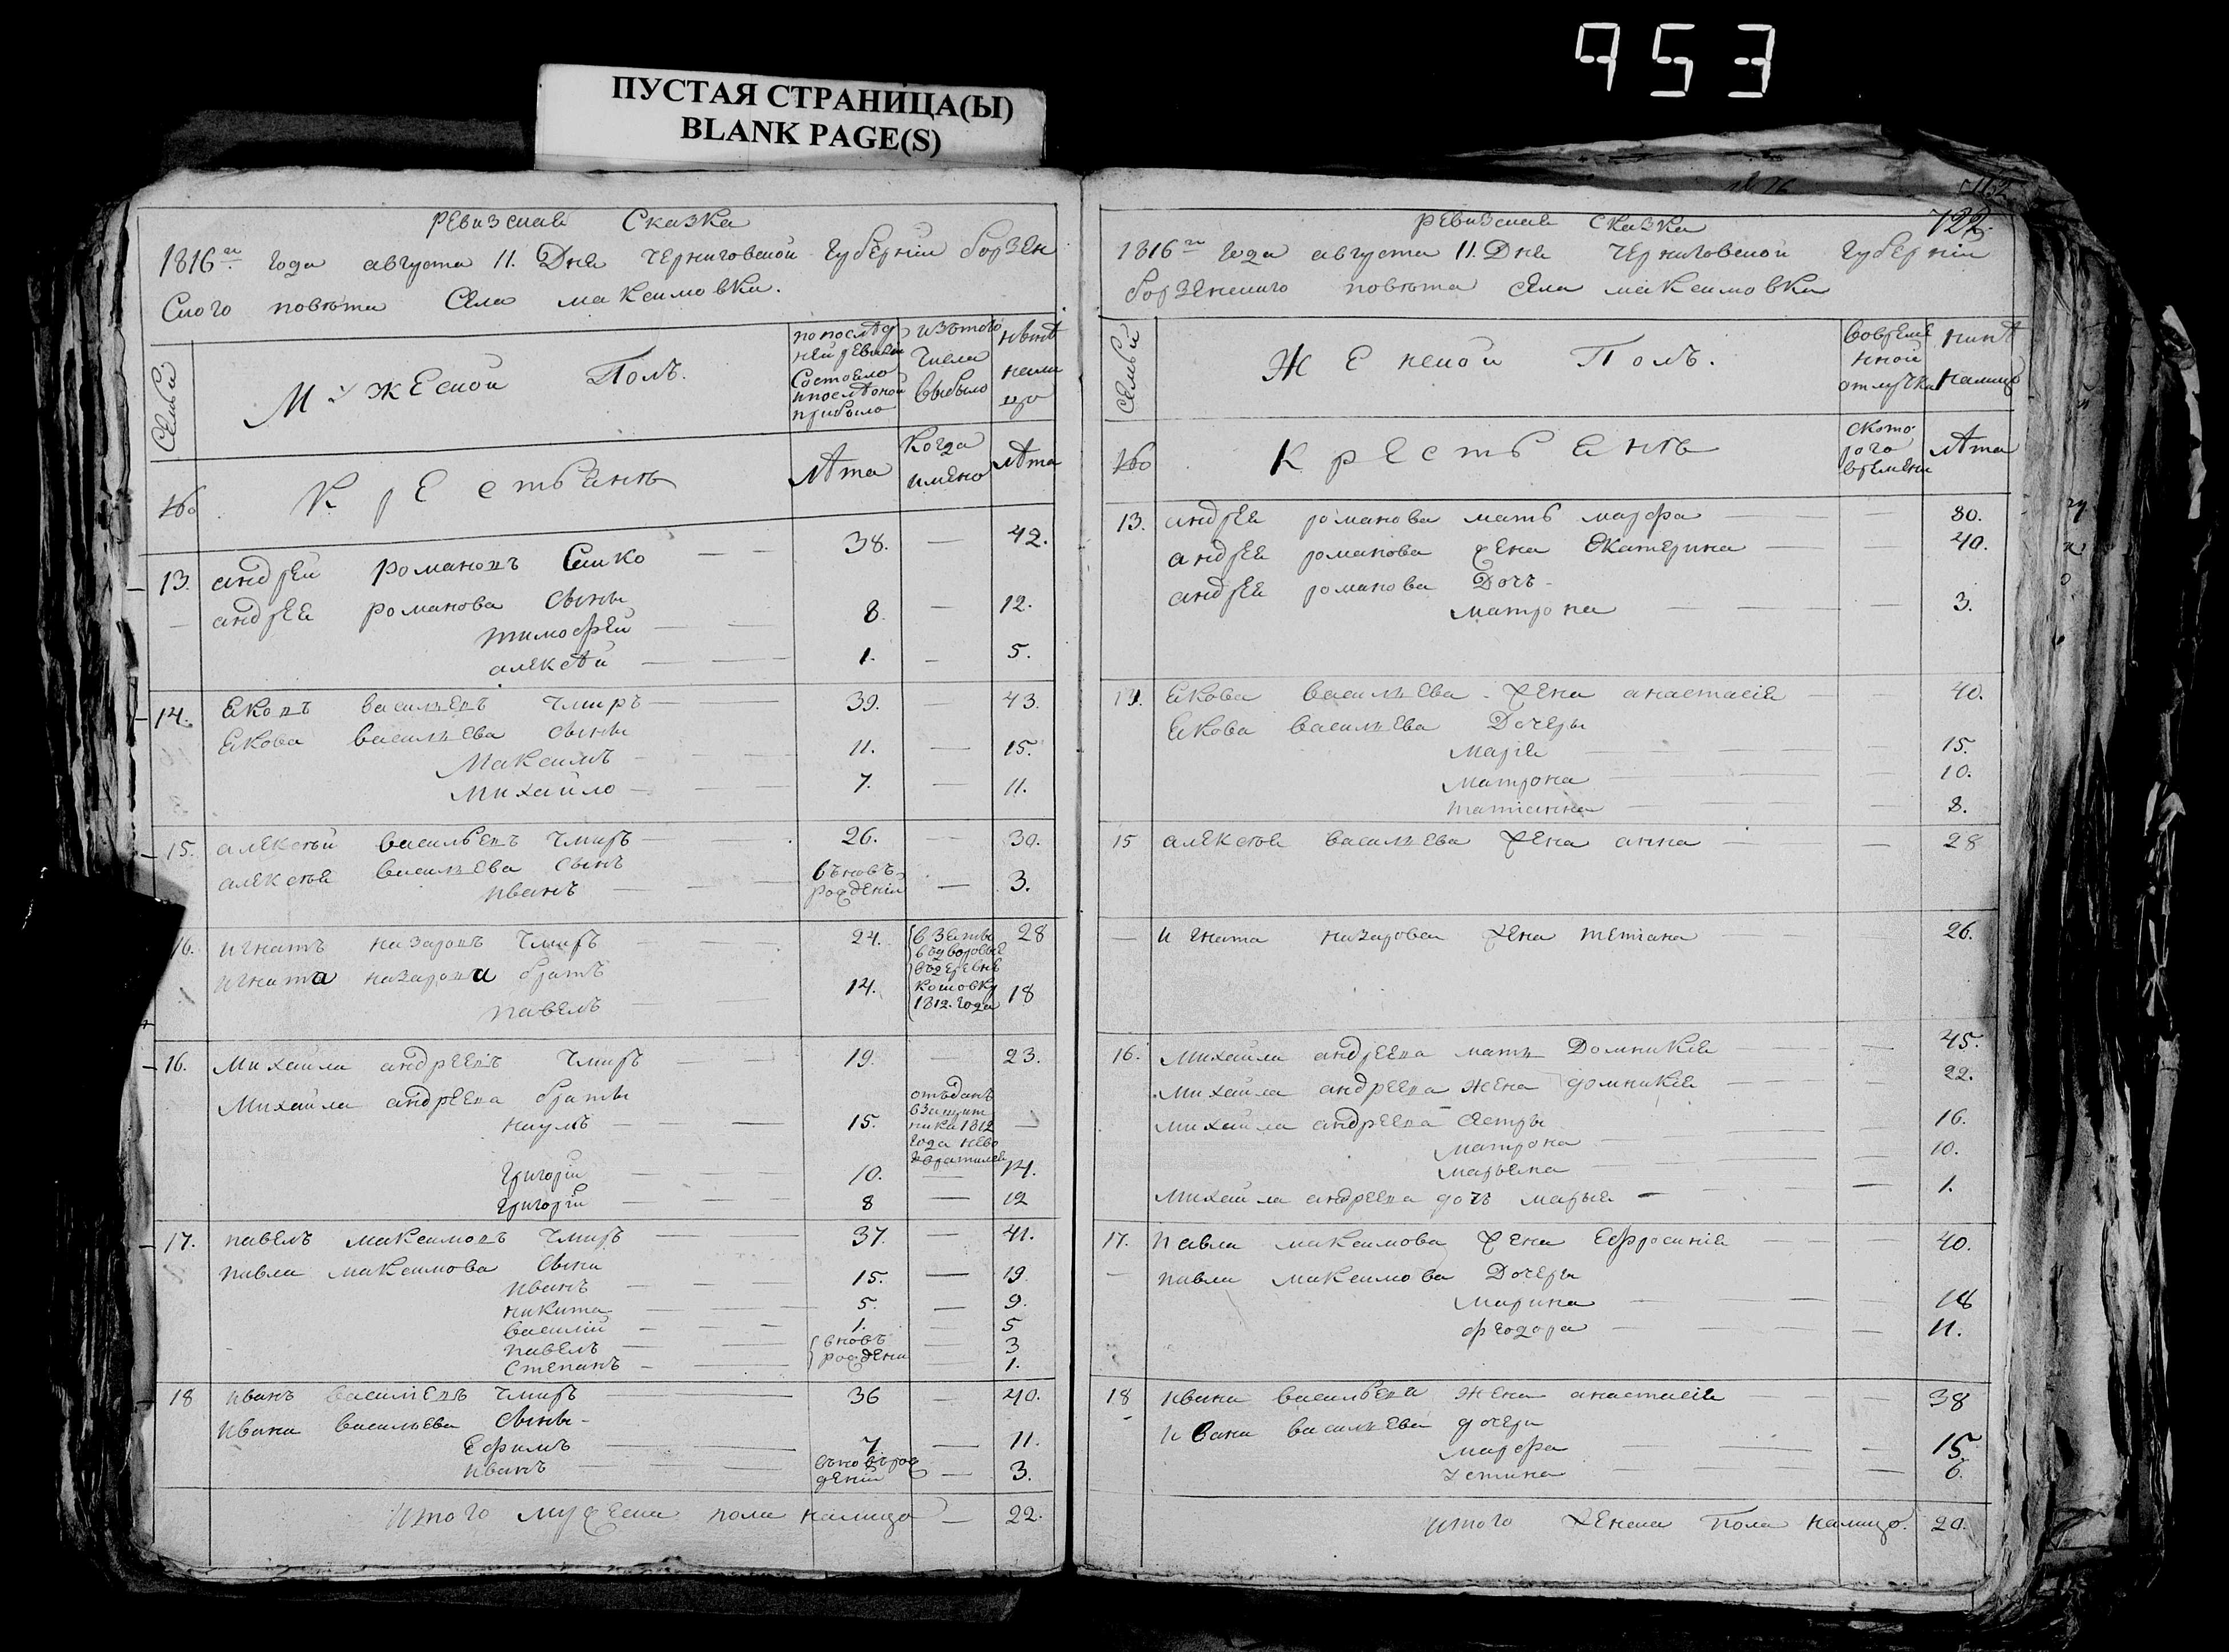 953
ПУСТАЯ СТРАНИЦА(Ы)
BLANK PAGE(S)
ревизская Сказка
1816го года августа 11. Дня черниговской губерніи борзен
Ского повѣта Села максимовки.
Семьи
Мужеской Полъ.
по послѣд
ней ревизіи
Состояло
и послѣ оной
прибыло
изътого
Числа
выбыло
нынѣ
нали
цо
№
Крестьянъ
лѣта
Когда
имено
лѣта
13. андрей романовъ — — 38. — 42.
андрея романова Сыны
тимофей — — 8. — 12.
алексѣй — — 1. — 5.
14. Яковъ васильевъ Чмиръ — 39. 43.
Якова васильева Сыны
Максимъ — — 11. — 15.
Михайло — — 7. — 11.
15. алексѣй васильевъ Чмиръ — 26. — 30.
алексѣя васильева Сынъ
иванъ — — вновь рожденій — 3.
16. игнатъ назаровъ Чмиръ — — 24. 28
игната назарова братъ
павелъ — 14. 18
взяты
въдеревнѣ
1812. года
16. Михайла андреевъ Чмиръ — — 19. — 23.
Михайла андреева браты
наумъ — — 15. —
отъданъ
1812
года нево
вратился
григорій — — 10. — 14.
григорій — — 8 — 12
17. павелъ максимовъ Чмиръ — 37. — 41.
павла максимова Сыны
иванъ — — 15. — 19.
никита — — 5. — 9.
василій — — 1. — 5
павелъ — — вновь — 3
Степанъ — — рождены — 1.
18 иванъ васильевъ Чмиръ — 36 — 40.
ивана васильева Сыны —
Ефимъ — 7. — 11.
иванъ — — вьновърож
деній — 3.
итого мужеска пола налицо — 22.
722.
ревизская сказка
1816го года августа 11. Дня черниговской губерніи
борзенского повѣта села максимовки
Семьи
Женской Полъ.
вовреме
нной
отлучки
нинѣ
налицо
№
Крестьянъ
ското
рого
времени
лѣта
13. андрея романова мать марфа — — 80.
андрея романова жена Екатерина — — 40.
андрея романова Дочъ —
матрона — — — 3.
14. Якова васильева жена анастасія — — 40.
Якова васильева Дочеры
марія — — — 15.
матрона — — — 10.
татіанна — — — 8.
15 алексѣя васильева жена анна — — 28
— игната назарова жена тетіана — — 26.
16. Михайла андреева мать Домникія — — 45.
Михайла андреева жена домникія — — 22.
михайла андреева Сестры
матрона — — — 16.
марьяна — — — 10.
михайла андреева дочь марья — — — 1.
17. Павла максимова жена Ефросинія — — 40.
— павла максимова Дочеры
марина — — — 18
феодора — — — 11.
18 ивана васильева жена анастасія — — 38
ивана васильева дочери
марфа — — — 15
устина — — — 6.
итого женска Пола налицо. 20.